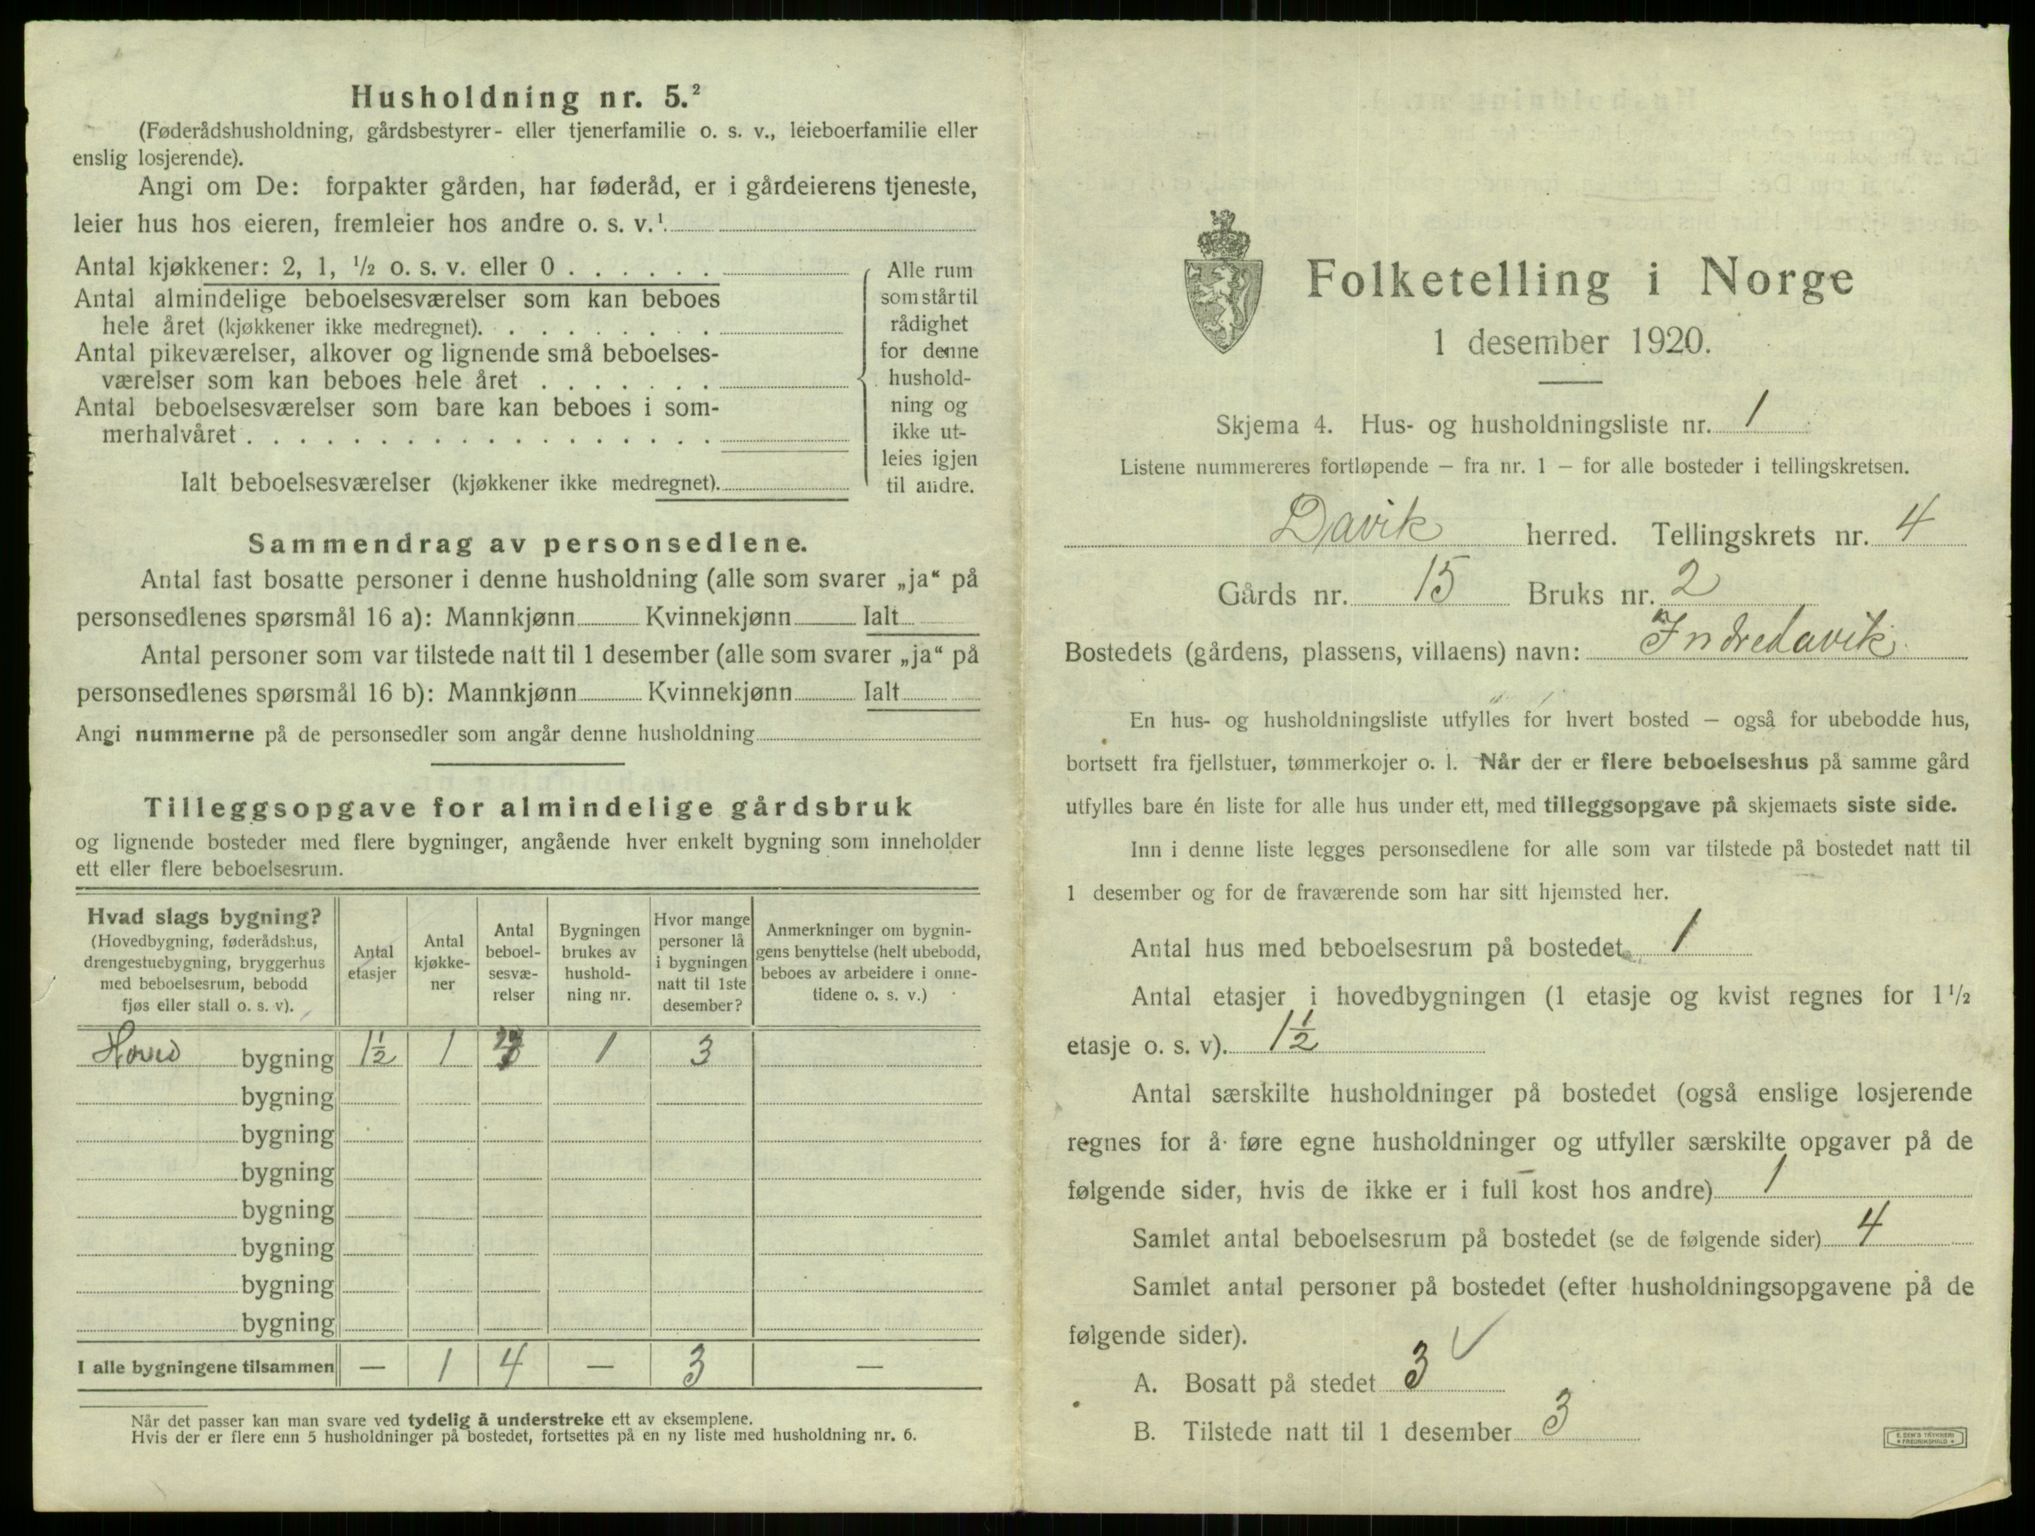 Husholdning nr. 5.²
(Føderådshusholdning, gårdsbestyrer- eller tjenerfamilie o. s. v., leieboerfamilie eller
enslig losjerende).
Angi om De: forpakter gården, har føderåd, er i gårdeierens tjeneste,
leier hus hos eieren, fremleier hos andre o. s. v.¹
Antal kjøkkener: 2, 1, ½ o. s. v. eller 0 . . . . . .
Antal almindelige beboelsesværelser som kan beboes
hele året (kjøkkener ikke medregnet). . . . . . . . .
Antal pikeværelser, alkover og lignende små beboelses-
værelser som kan beboes hele året . . . . . . .
Antal beboelsesværelser som bare kan beboes i som-
merhalvåret . . . . . . . . . . . . . . . . . .
Ialt beboelsesværelser (kjøkkener ikke medregnet).
Alle rum
som står til
rådighet
for denne
hushold-
ning og
ikke ut-
leies igjen
til andre.
Sammendrag av personsedlene.
Antal fast bosatte personer i denne husholdning (alle som svarer „ja“ på
personsedlenes spørsmål 16 a): Mannkjønn Kvinnekjønn Ialt
Antal personer som var tilstede natt til 1 desember (alle som svarer „ja“ på
personsedlenes spørsmål 16 b): Mannkjønn Kvinnekjønn Ialt
Angi nummerne på de personsedler som angår denne husholdning
Tilleggsopgave for almindelige gårdsbruk
og lignende bosteder med flere bygninger, angående hver enkelt bygning som inneholder
ett eller flere beboelsesrum.
Hvad slags bygning?
(Hovedbygning, føderådshus,
drengestuebygning, bryggerhus
med beboelsesrum, bebodd
fjøs eller stall o. s. v).
Antal
etasjer
Antal
kjøkke-
ner
Antal
beboel-
sesvæ-
relser
Bygningen
brukes av
hushold-
ning nr.
Hvor mange
personer lå
i bygningen
natt til 1ste
desember?
Anmerkninger om bygnin-
gens benyttelse (helt ubebodd,
beboes av arbeidere i onne-
tidene o. s. v.)
Hoved bygning 1½ 1 1 3
bygning
bygning
bygning
bygning
bygning
bygning
bygning
I alle bygningene tilsammen — 1 4 — 3 —
Når det passer kan man svare ved tydelig å understreke ett av eksemplene.
Hvis der er flere enn 5 husholdninger på bostedet, fortsettes på en ny liste med husholdning nr. 6.
Folketelling i Norge
1 desember 1920.
Skjema 4. Hus- og husholdningsliste nr. 1
Listene nummereres fortløpende – fra nr. 1 – for alle bosteder i tellingskretsen.
Davik herred. Tellingskrets nr. 4
Gårds nr. 15 Bruks nr. 2
Bostedets (gårdens, plassens, villaens) navn: Indredavik
En hus- og husholdningsliste utfylles for hvert bosted – også for ubebodde hus,
bortsett fra fjellstuer, tømmerkojer o. l. Når der er flere beboelseshus på samme gård
utfylles bare én liste for alle hus under ett, med tilleggsopgave på skjemaets siste side.
Inn i denne liste legges personsedlene for alle som var tilstede på bostedet natt til
1 desember og for de fraværende som har sitt hjemsted her.
Antal hus med beboelsesrum på bostedet 1
Antal etasjer i hovedbygningen (1 etasje og kvist regnes for 1½
etasje o. s. v). 1½
Antal særskilte husholdninger på bostedet (også enslige losjerende
regnes for å føre egne husholdninger og utfyller særskilte opgaver på de
følgende sider, hvis de ikke er i full kost hos andre) 1
Samlet antal beboelsesrum på bostedet (se de følgende sider) 4
Samlet antal personer på bostedet (efter husholdningsopgavene på de
følgende sider).
A. Bosatt på stedet 3 ✓
B. Tilstede natt til 1 desember 3
E. SEM'S TRYKKERI
FREDRIKSHALD